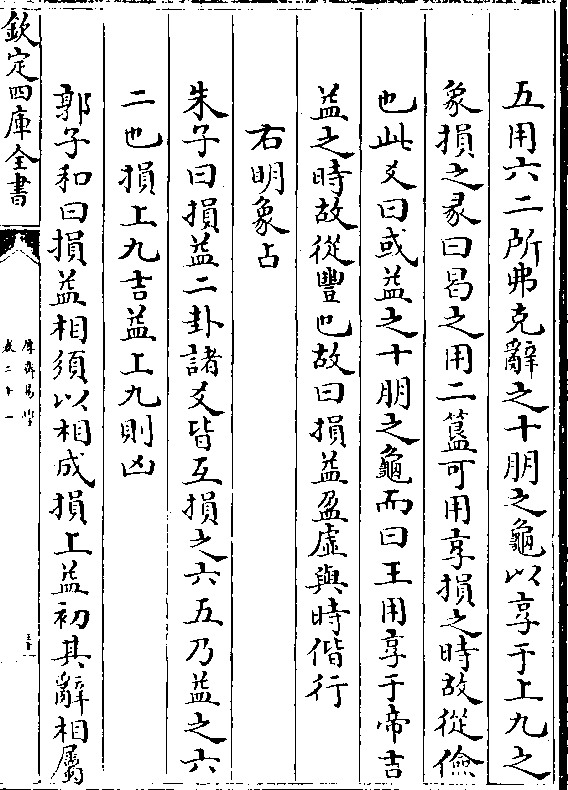 五用六二所弗克辭之十朋之龜以享于上九之
象損之彖曰曷之用二簋可用享損之時故從儉
也此爻曰或益之十朋之龜而曰王用享于帝吉
益之時故從豐也故曰損益盈虛與時偕行
右明象占
朱子曰損益二卦諸爻皆互損之六五乃益之六
二也損上九吉益上九則凶
郭子和曰損益相須以相成損上益初其辭相屬
欽定四庫全書
厚齋易學
卷二十一